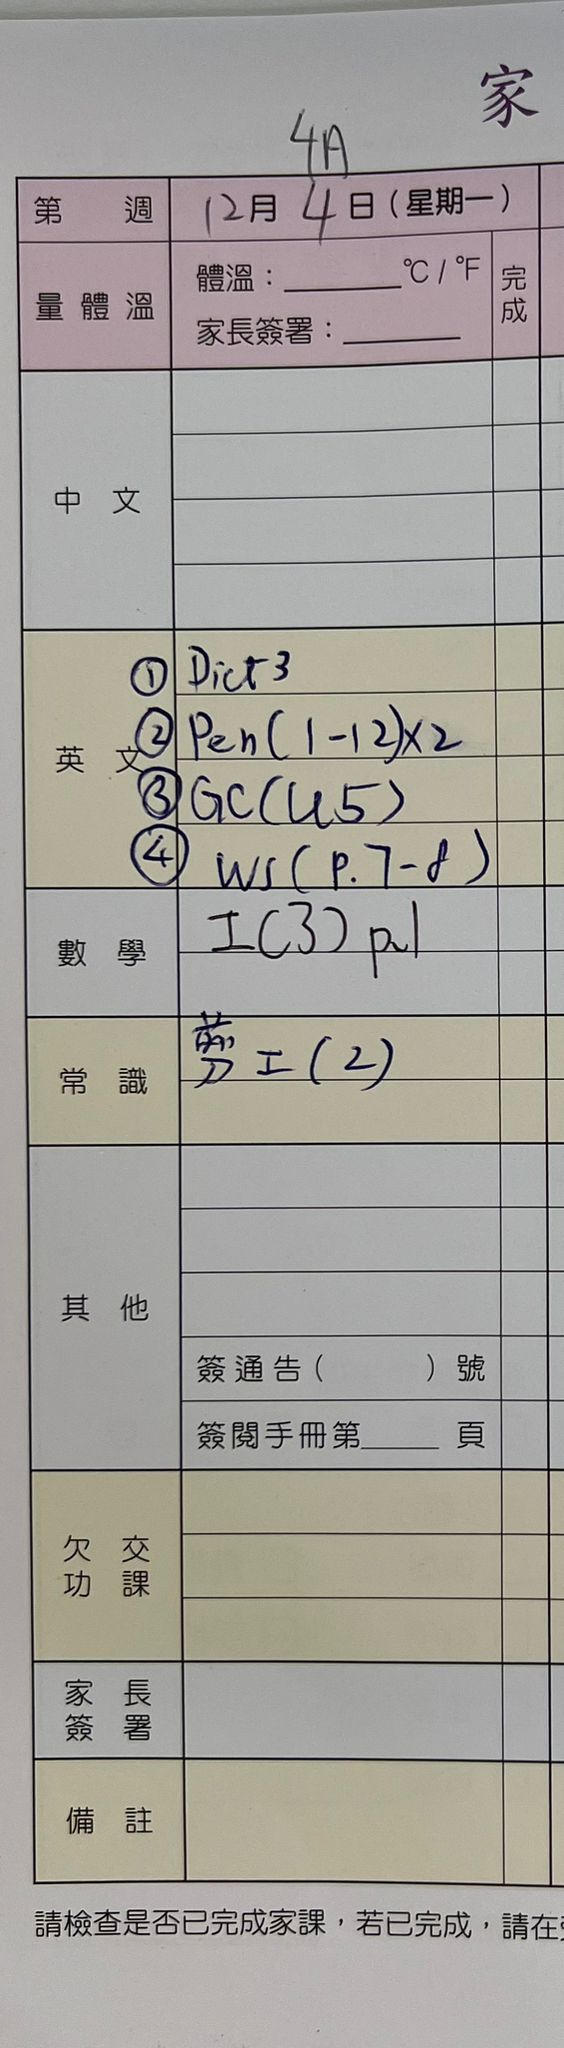 家
4A
第 週 12月 4日(星期一)
量體溫 體溫:______℃/℉ 完成
家長簽署:______
中 文
英 文
① Dict 3
② Pen(1-12)×2
③ GC(U5)
④ WS(P.7-8)
數 學 工(3) p.1
常 識 剪工(2)
其 他
簽通告( )號
簽閱手冊第____頁
欠 交
功 課
家 長
簽 署
備 註
請檢查是否已完成家課,若已完成,請在